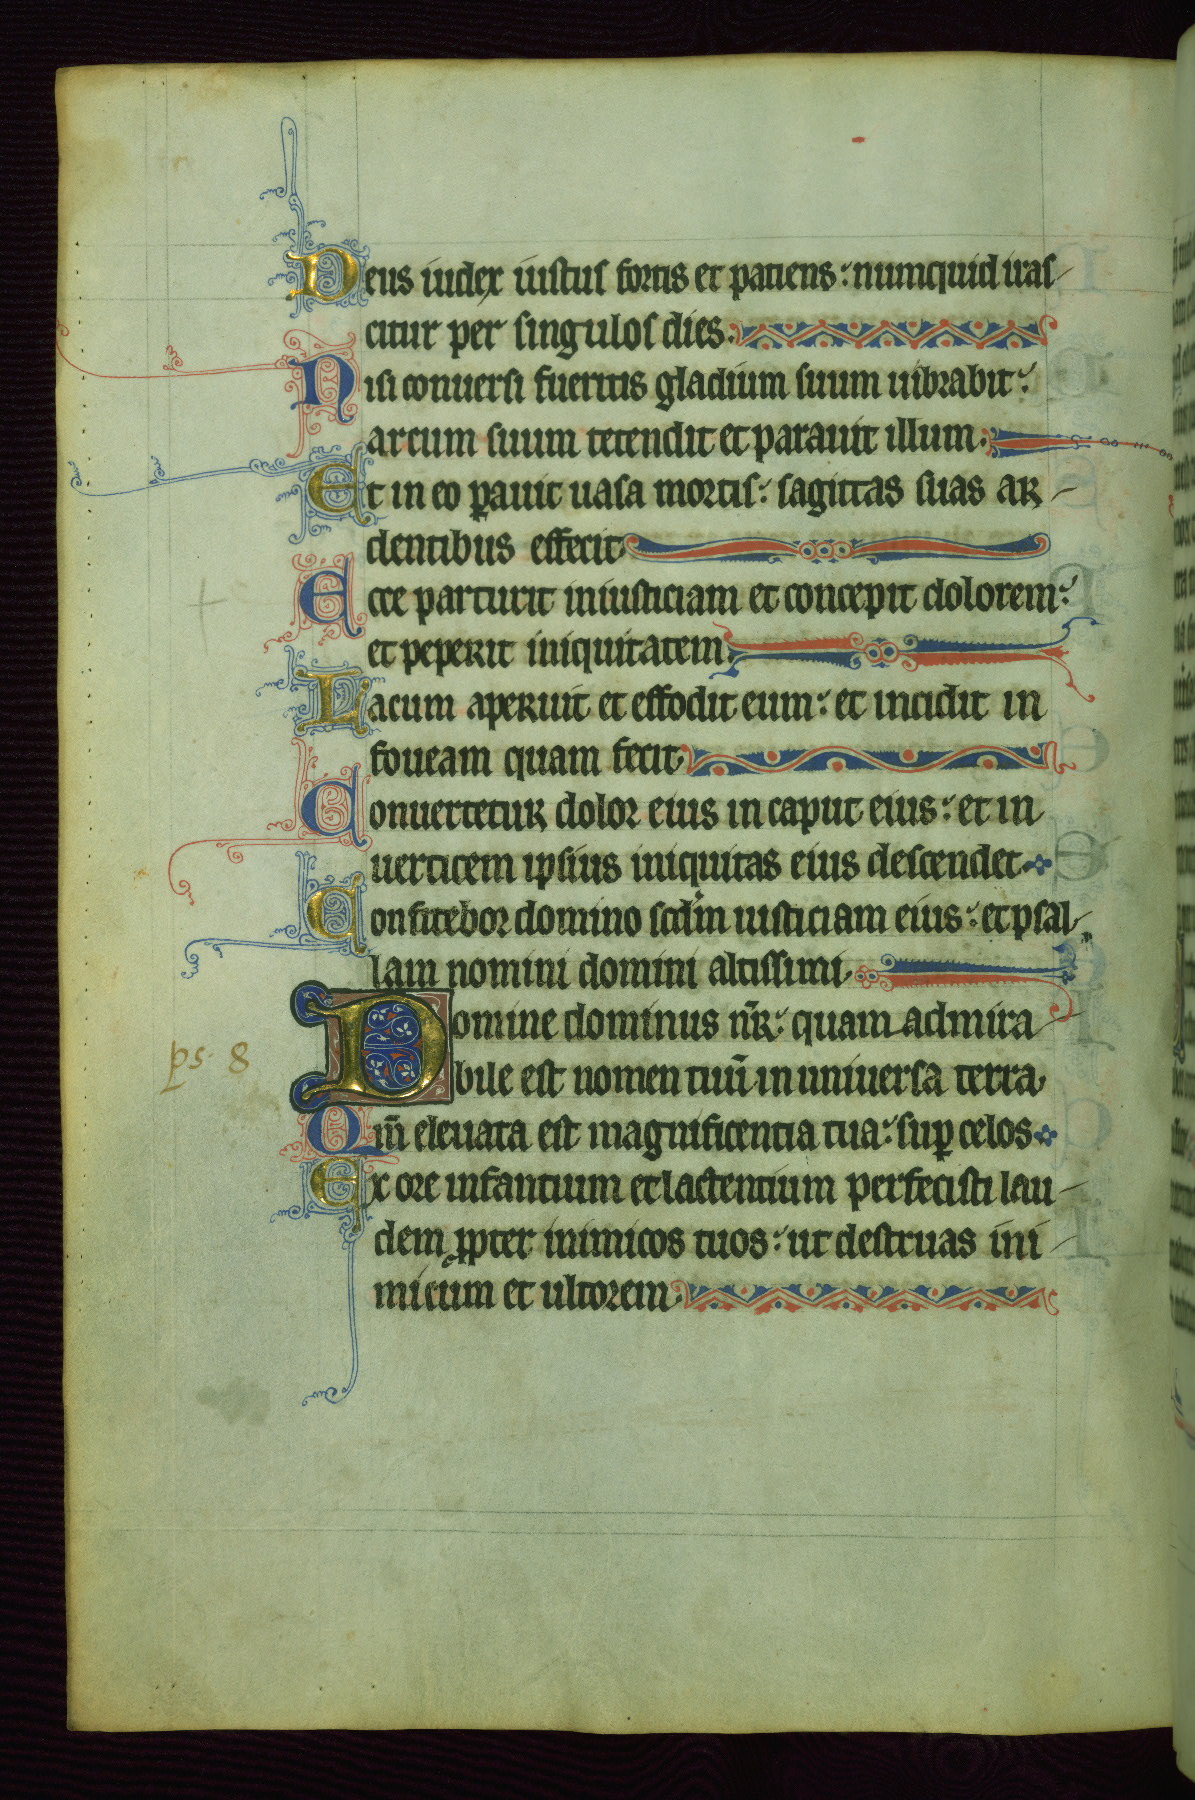 Deus iudex iustus fortis et patiens: numquid iras
citur per singulos dies.
Nisi conuersi fueritis gladium suum uibrabit:
arcum suum tetendit et parauit illum.
Et in eo ꝑauit uasa mortis: sagittas suas ar
dentibus effecit
Ecce parturit iniusticiam et concepit dolorem:
et peperit iniquitatem.
Lacum aperuit et effodit eum: et incidit in
foueam quam fecit
Conuertetur dolor eius in caput eius: et in
uerticem ipsius iniquitas eius descendet
Confitebor domino scd̄m iusticiam eius: et psal
lam nomini domini altissimi.
Domine dominus nr̄: quam admira
bile est nomen tuū in uniuersa terra
Qm̄ eleuata est magnificentia tua: suꝑ celos
Ex ore infantium et lactentium perfecisti lau
dem ꝓpter inimicos tuos: ut destruas ini
micum et ultorem
ps. 8